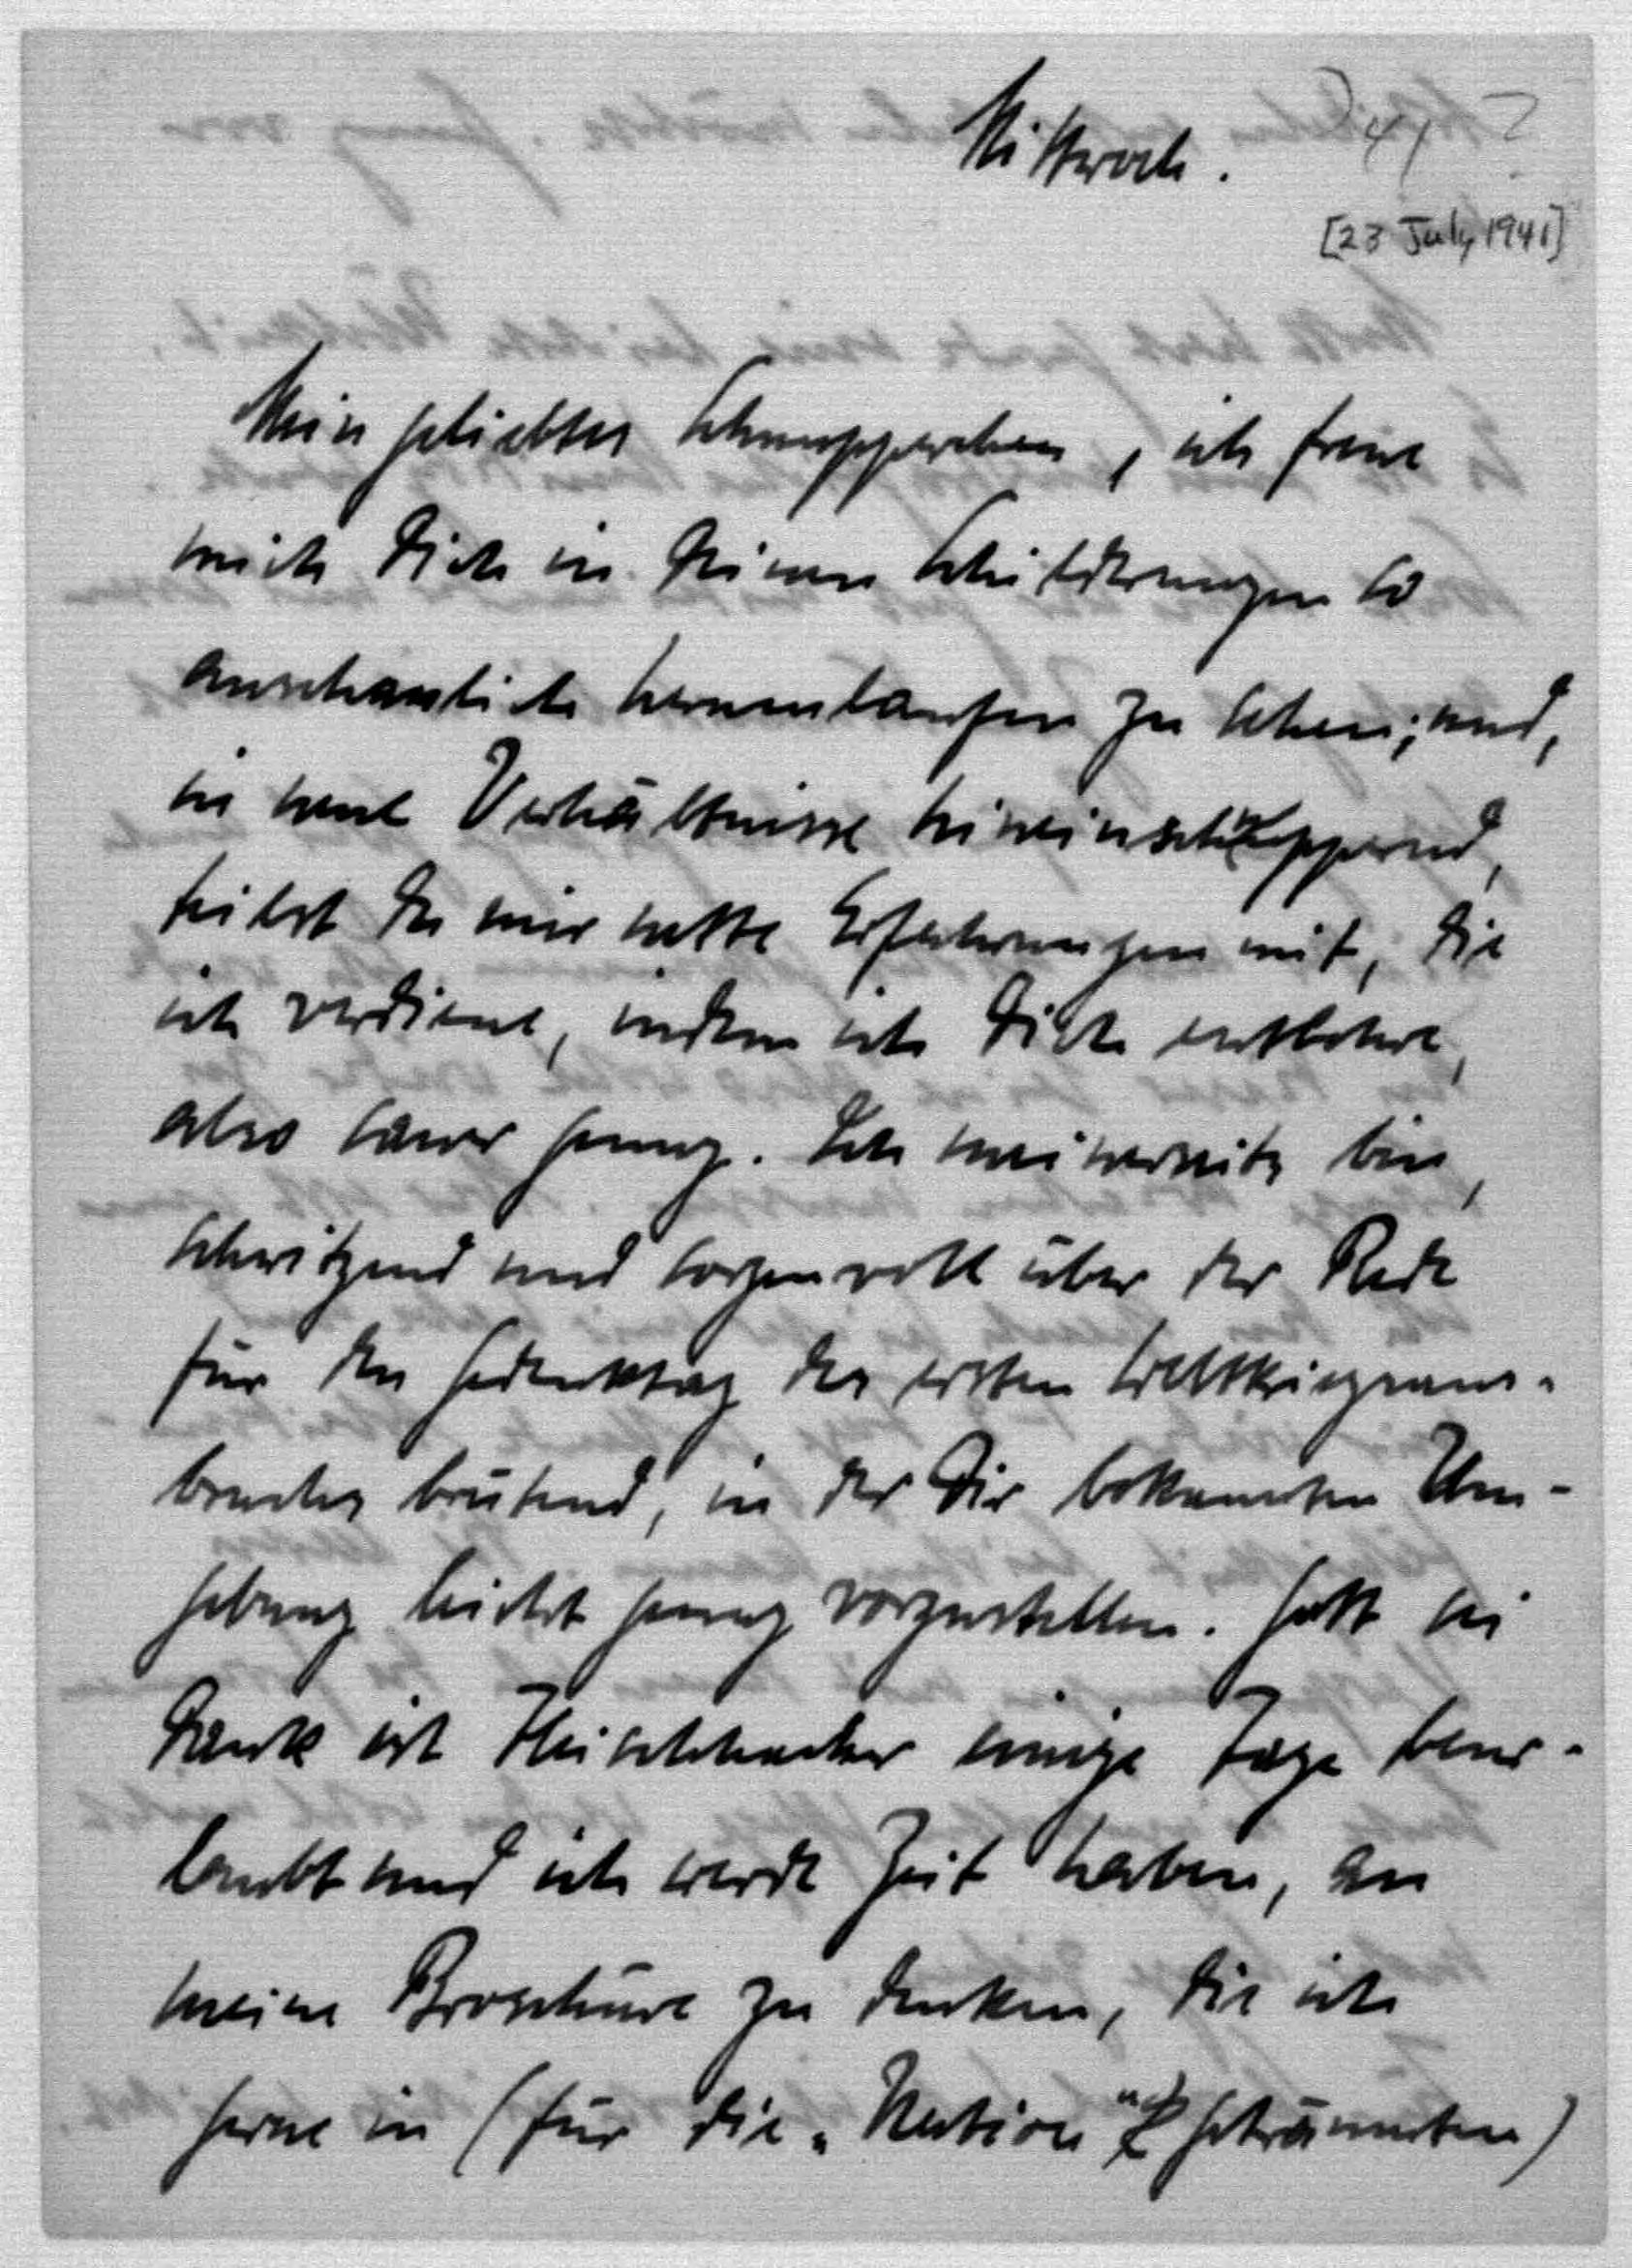 Mittwoch. 41 ?
[23 July 1941]
Mein geliebtes Schnupperchen, ich freue
mich Dich in Deinen Schilderungen so
anschaulich herumlaufen zu sehen; und,
in neue Verhältnisse hineinschnuppernd,
teilst Du mir nette Erfahrungen mit, die
ich verdiene, indem ich Dich entbehre,
also sauer genug. Ich meinerseits bin,
schwitzend und sorgenvoll über der Rede
für den Gedenktag des ersten Weltkriegsaus-
bruches brütend, in der Dir bekannten Um-
gebung leicht genug vorzustellen. Gott sei
Dank ist einige Tage beur-
laubt und ich werde Zeit haben, an
meine Broschüre zu denken, die ich
gerne in (für die „Nation" geträumten)